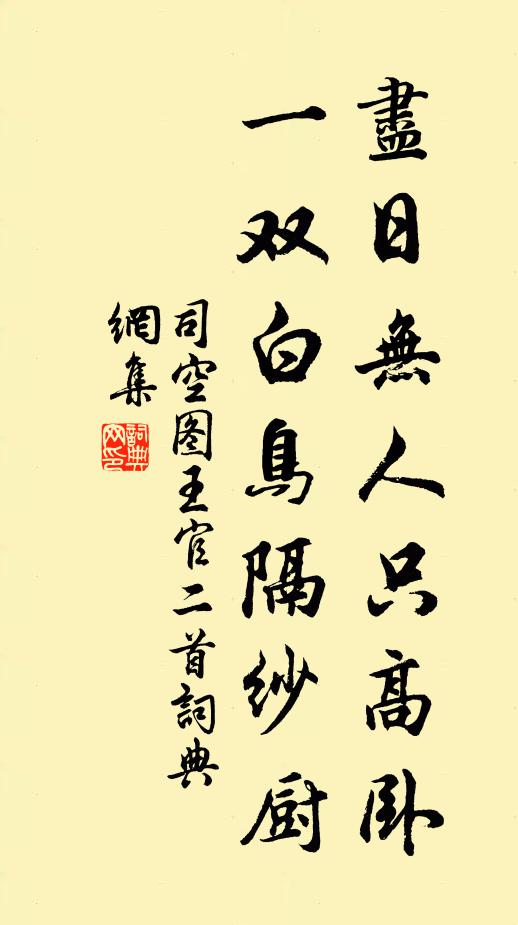 盡日無人只高卧
一双白鳥隔紗厨
司空图王官二首詞典
網集
詞典
网印